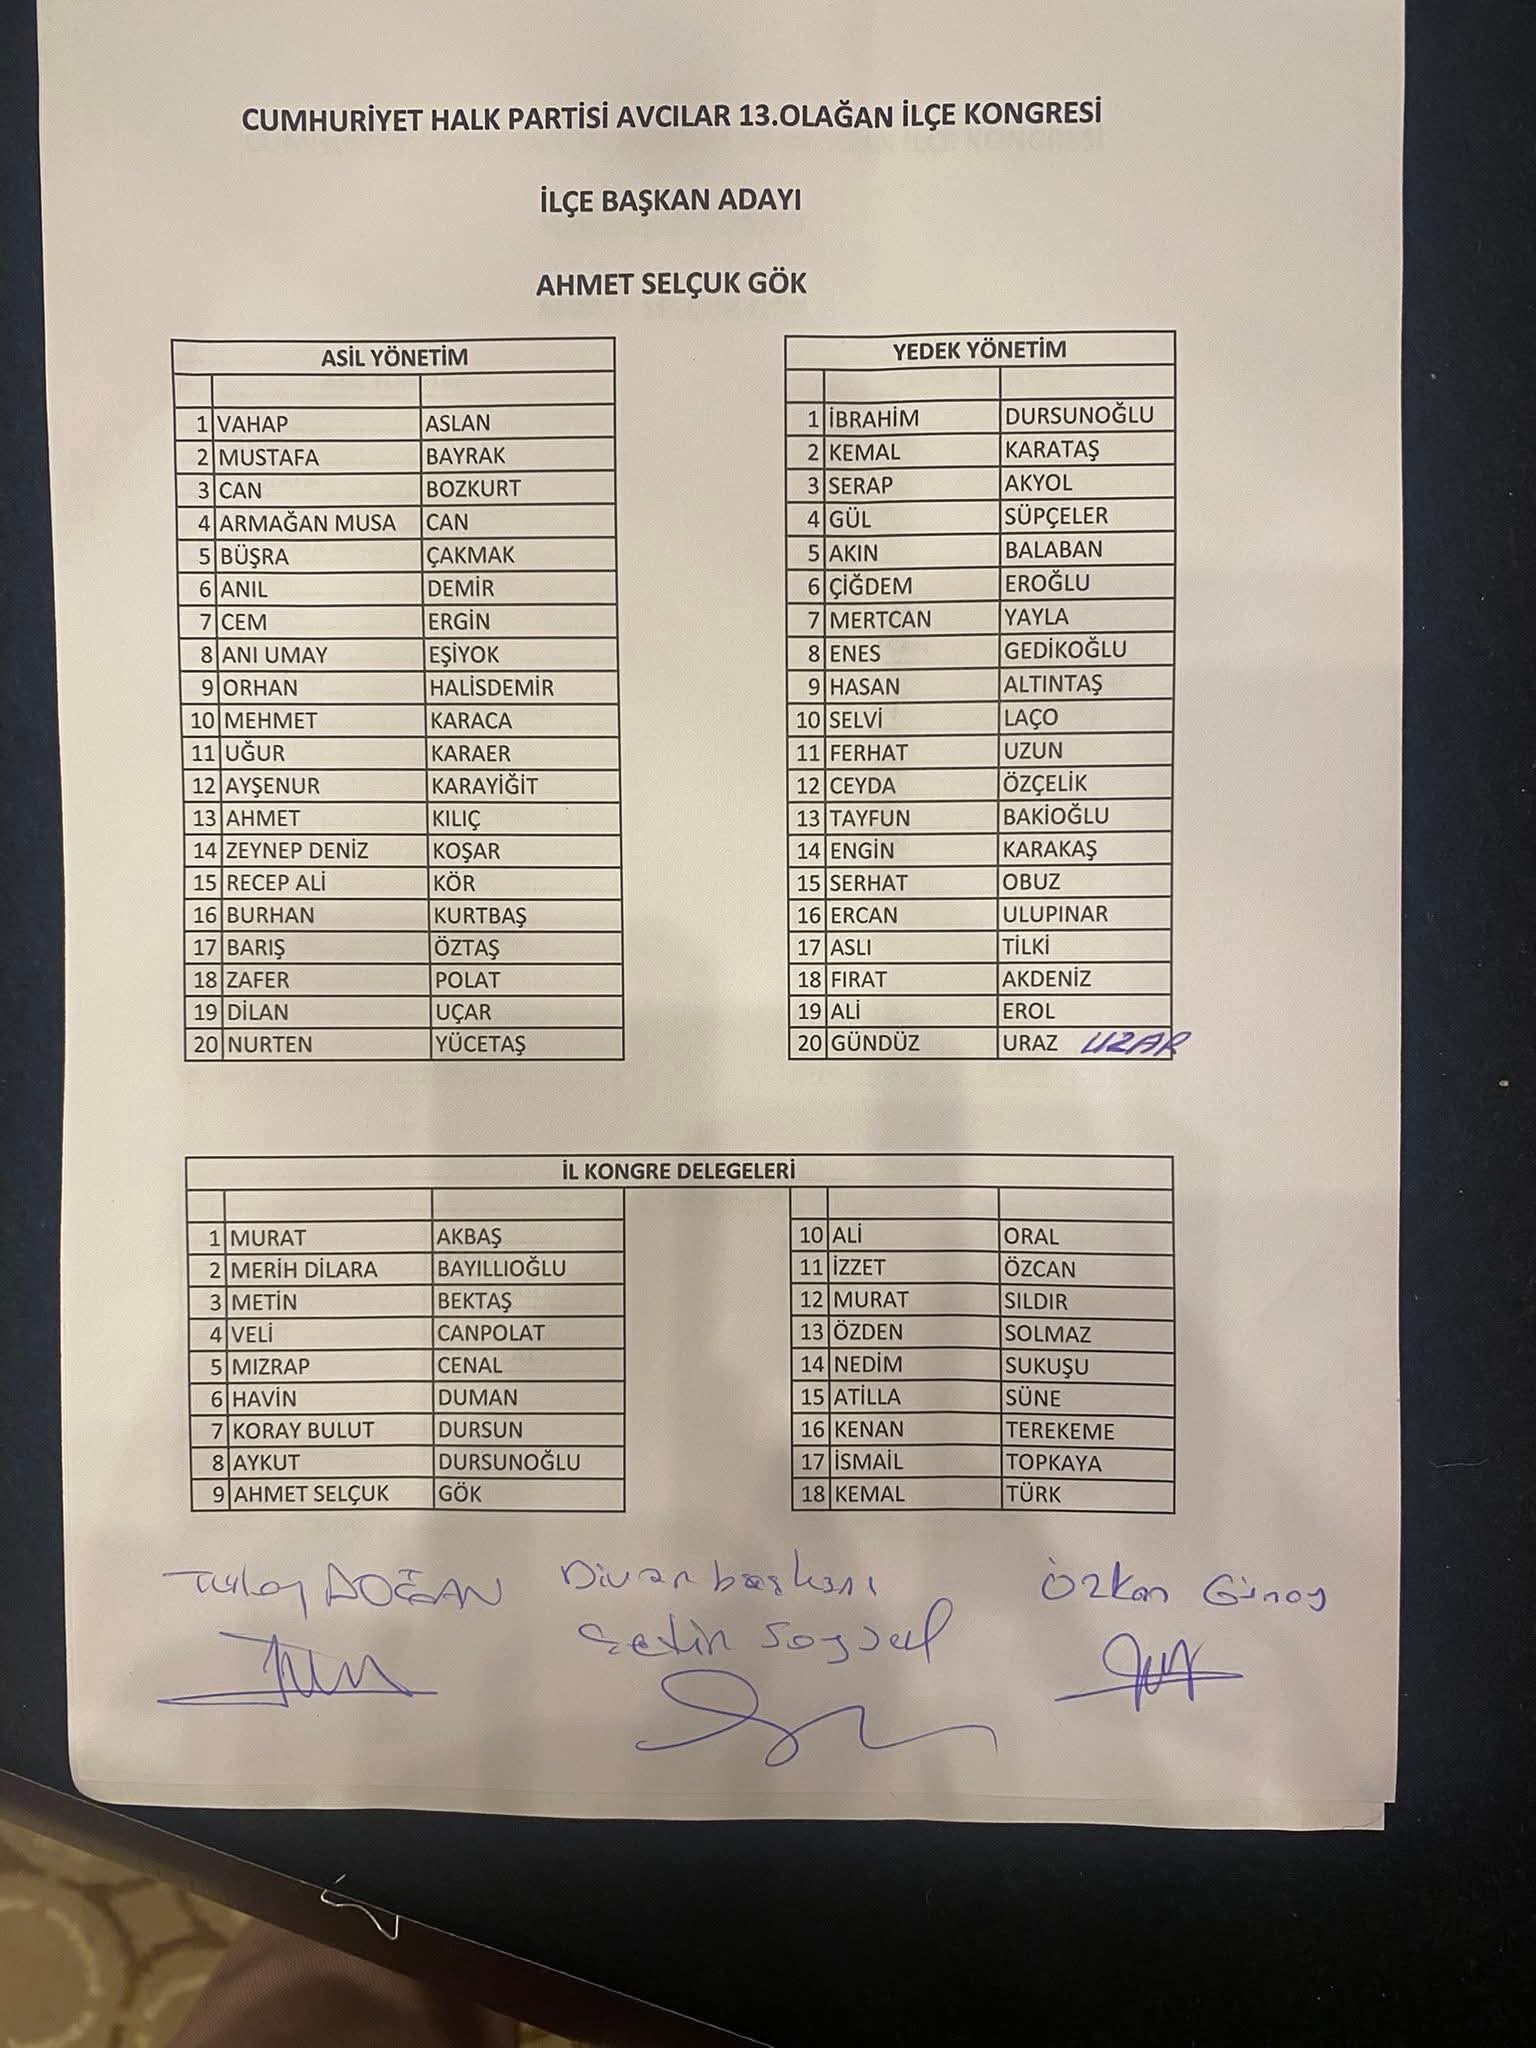 CUMHURİYET HALK PARTİSİ AVCILAR 13.OLAĞAN İLÇE KONGRESİ
İLÇE BAŞKAN ADAYI
AHMET SELÇUK GÖK
ASİL YÖNETİM
1 VAHAP ASLAN
2 MUSTAFA BAYRAK
3 CAN BOZKURT
4 ARMAĞAN MUSA CAN
5 BÜŞRA ÇAKMAK
6 ANIL DEMİR
7 CEM ERGİN
8 ANI UMAY EŞİYOK
9 ORHAN HALİSDEMİR
10 MEHMET KARACA
11 UĞUR KARAER
12 AYŞENUR KARAYİĞİT
13 AHMET KILIÇ
14 ZEYNEP DENİZ KOŞAR
15 RECEP ALİ KÖR
16 BURHAN KURTBAŞ
17 BARIŞ ÖZTAŞ
18 ZAFER POLAT
19 DİLAN UÇAR
20 NURTEN YÜCETAŞ
YEDEK YÖNETİM
1 İBRAHİM DURSUNOĞLU
2 KEMAL KARATAŞ
3 SERAP AKYOL
4 GÜL SÜPÇELER
5 AKIN BALABAN
6 ÇİĞDEM EROĞLU
7 MERTCAN YAYLA
8 ENES GEDİKOĞLU
9 HASAN ALTINTAŞ
10 SELVİ LAÇO
11 FERHAT UZUN
12 CEYDA ÖZÇELİK
13 TAYFUN BAKİOĞLU
14 ENGİN KARAKAŞ
15 SERHAT OBUZ
16 ERCAN ULUPINAR
17 ASLI TİLKİ
18 FIRAT AKDENİZ
19 ALİ EROL
20 GÜNDÜZ URAZ UZAR
İL KONGRE DELEGELERİ
1 MURAT AKBAŞ
2 MERİH DİLARA BAYILLIOĞLU
3 METİN BEKTAŞ
4 VELİ CANPOLAT
5 MIZRAP CENAL
6 HAVİN DUMAN
7 KORAY BULUT DURSUN
8 AYKUT DURSUNOĞLU
9 AHMET SELÇUK GÖK
10 ALİ ORAL
11 İZZET ÖZCAN
12 MURAT SILDIR
13 ÖZDEN SOLMAZ
14 NEDİM SUKUŞU
15 ATİLLA SÜNE
16 KENAN TEREKEME
17 İSMAİL TOPKAYA
18 KEMAL TÜRK
Tülay DOĞAN
Divan başkanı
Çetin Soysal
Özkan Günay